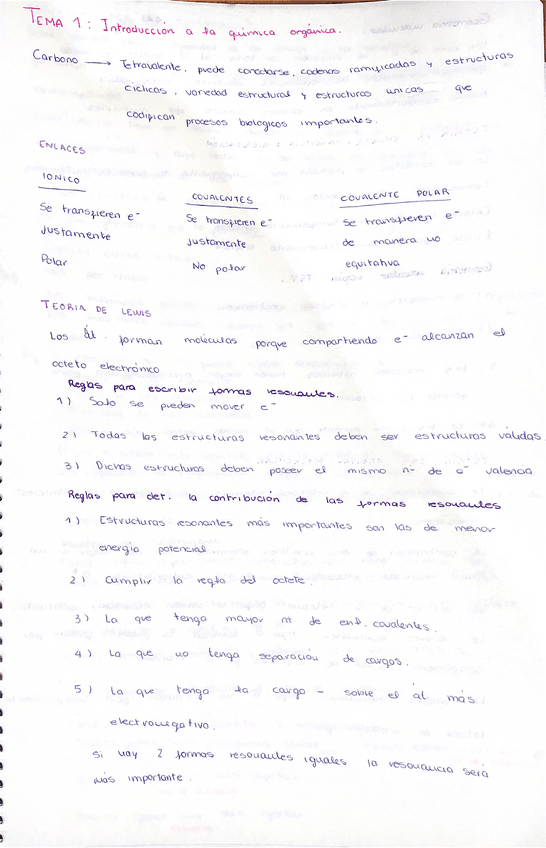 TEMA 1: Introducción a la química orgánica.
Carbono → Tetravalente, puede conectarse, cadenas ramificadas y estructuras
cíclicas, variedad estructural y estructuras unicas que
codifican procesos biologicos importantes.
ENLACES
IONICO
Se transfieren e⁻
justamente
Polar
COVALENTES
Se transfieren e⁻
justamente
No polar
COVALENTE POLAR
Se transfieren e⁻
de manera no
equitativa
TEORIA DE LEWIS
Los át. forman moléculas porque compartiendo e⁻ alcanzan el
octeto electrónico
Reglas para escribir formas resonantes.
1) Solo se pueden mover e⁻
2) Todas las estructuras resonantes deben ser estructuras válidas
3) Dichas estructuras deben poseer el mismo nº de e⁻ valencia
Reglas para det. la contribución de las formas resonantes
1) Estructuras resonantes más importantes son las de menor
energía potencial.
2) Cumplir la regla del octete.
3) La que tenga mayor nº de enl. covalentes.
4) La que no tenga separación de cargas.
5) La que tenga la carga - sobre el át más
electronegativo.
Si hay 2 formas resonantes iguales la resonancia será
más importante.